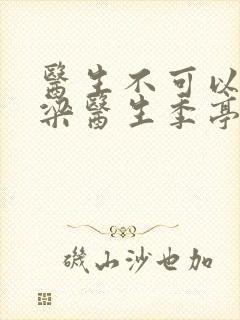 醫生不可以
梁醫生季亭
磯山沙也加